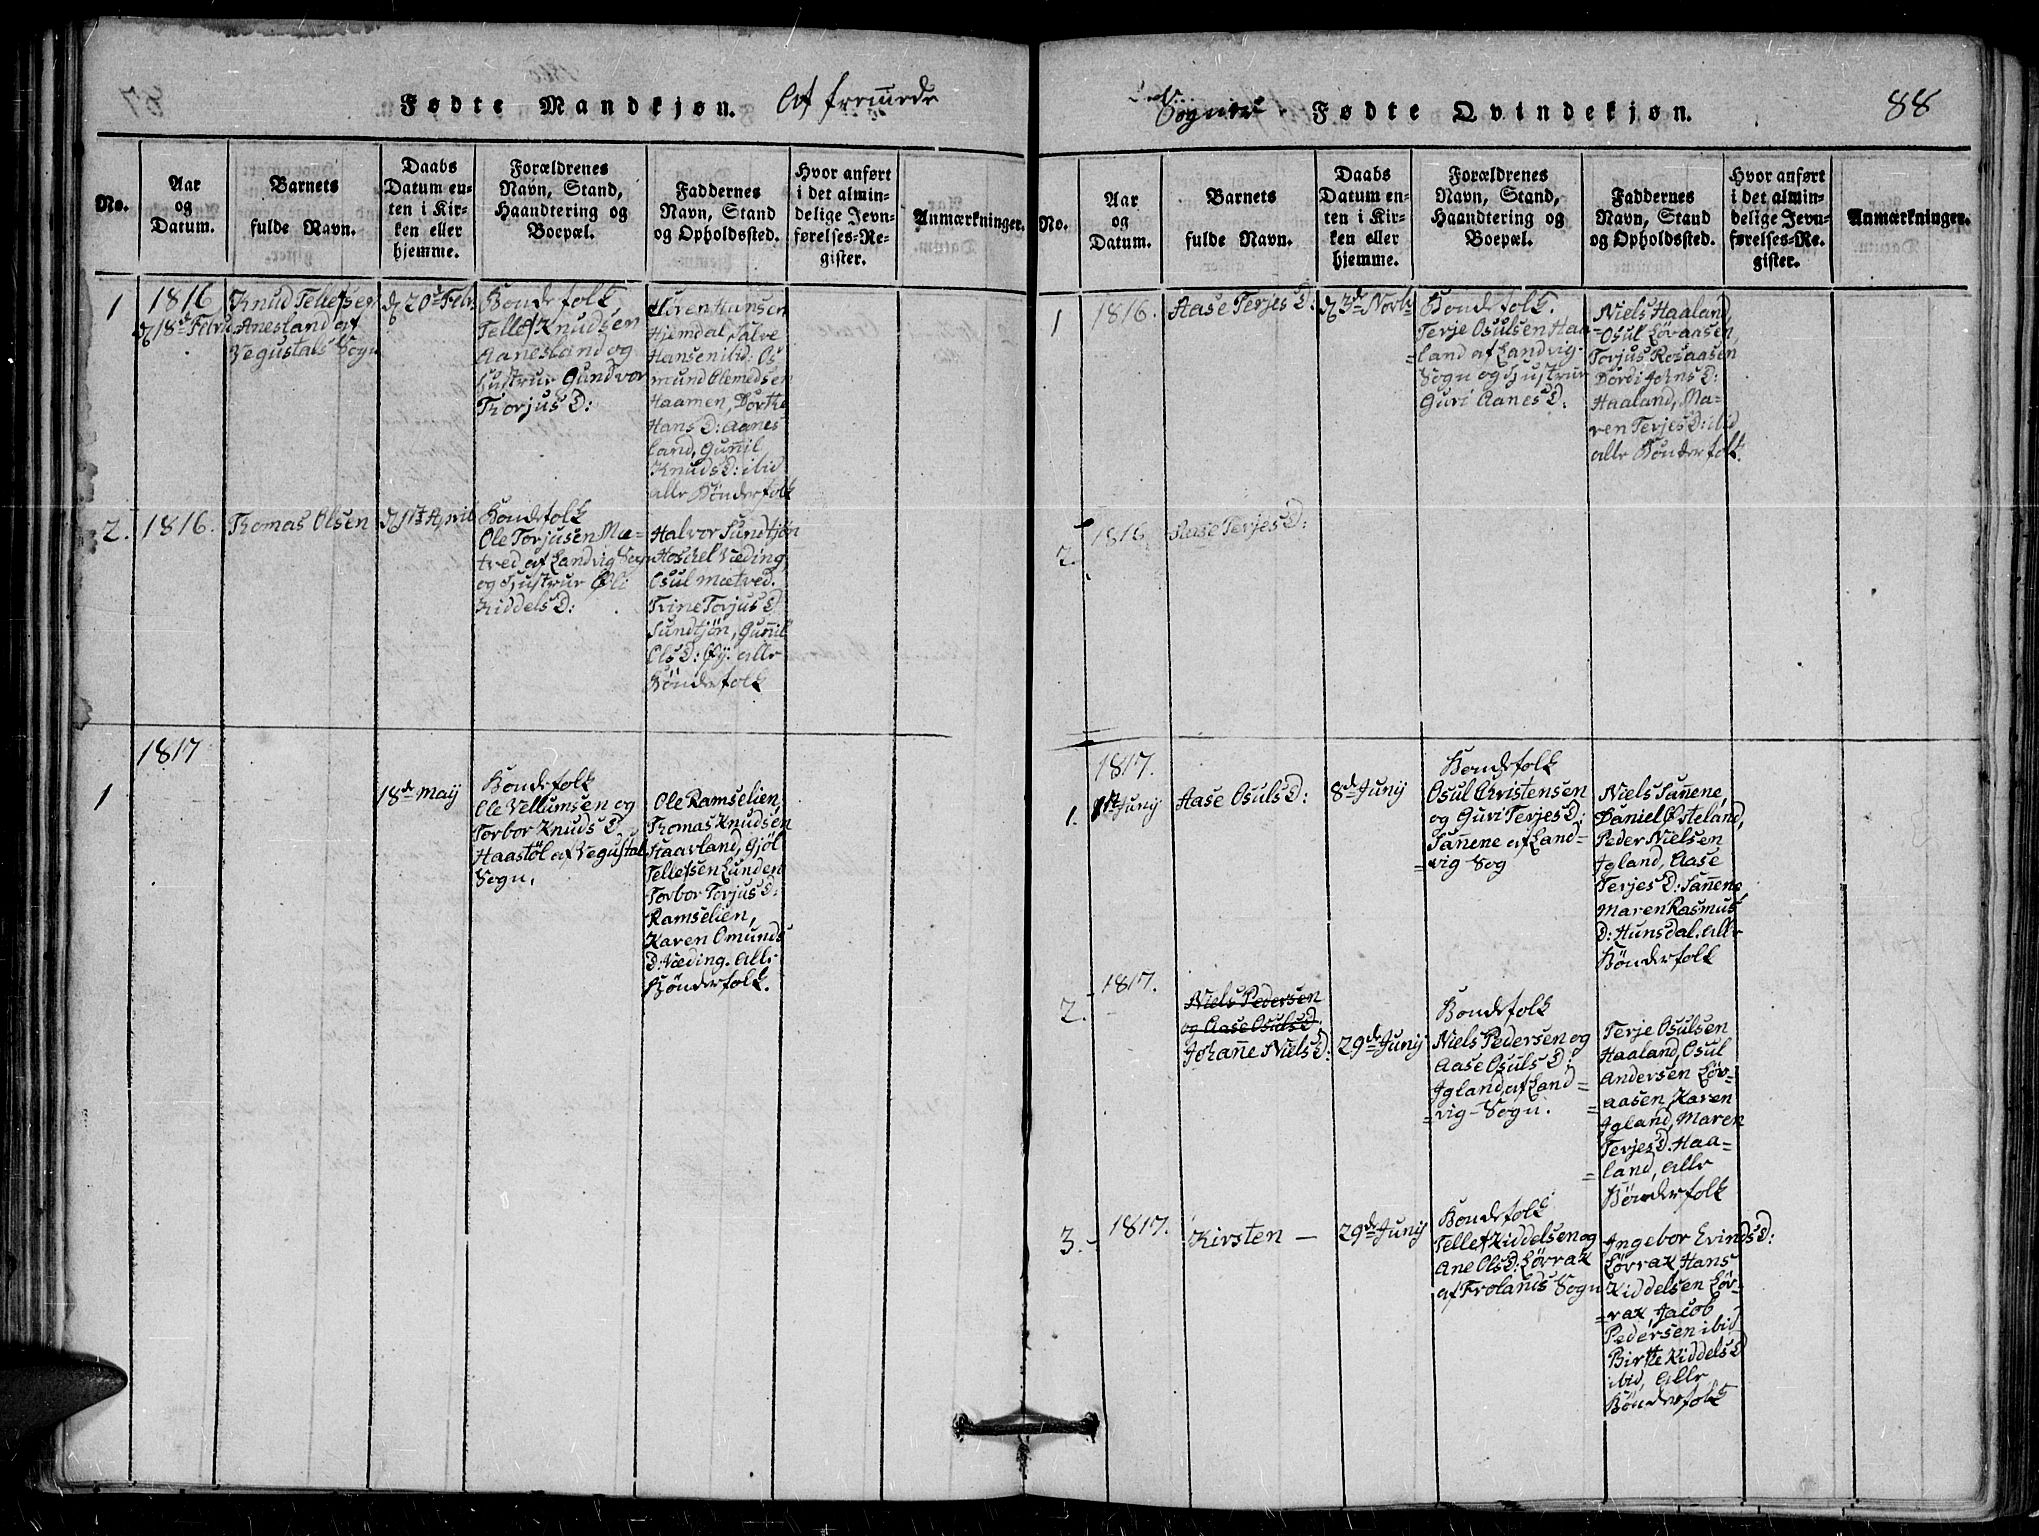 Fødte Mandkjøn. Af fremede
No.
Aar
og
Datum.
Barnets
fulde Navn.
Daabs
Datum en-
ten i Kir-
ken eller
hjemme.
Forældrenes
Navn, Stand,
Haandtering og
Boepæl.
Faddernes
Navn, Stand
og Opholdssted.
Hvor anført
i det almin-
delige Jevn-
førelses-Re-
gister.
Anmærkninger.
1
1816
18d Febru
Knud Tellefsen
Anesland af
Vegustals Sogn
20d Febr.
Bondefolk
Tellef Knudsen
Aanesland og
Hustrue Gundvor
Torjus D:
Hansen
Hjemdal, Salve
Hansen ibid: Os
mund Olemedsen
Haamen, Dorthe
Hans D: Aanes
land, Guñil
Knuds D: ibid
alle Bønderfolk
2.
1816.
Thomas Olsen
1st April
Bondefolk
Ole Torjusen Mæ-
tred af Landvig Sogn
og Hustrue Øli
Kiddels D:
Halvor Sundtjøn
Hoskel Væding
Osul Mætved.
Trine Torjus D
Sundtjøn, Guñil
Ols D: Øÿ. alle
Bønderfolk
1817
1
18de May
Bondefolk
Ole Vellumsen og
Torbor Knuds D
Haastøl af Vegustal
Sogn.
Ole Ramselien,
Thomas Knudsen
Staavland, Gjøl
Tellefsen Lunden
Torbor Torjus D:
Ramselien,
Karen Omunds
D: Væding. alle
Bønderfolk.
Sogner. Fødte Qvindekjøn.
88
No.
Aar
og
Datum.
Barnets
fulde Navn.
Daabs
Datum en-
ten i Kir-
ken eller
hjemme.
Forældrenes
Navn, Stand,
Haandtering og
Boepæl.
Faddernes
Navn, Stand
og Opholdssted.
Hvor anført
i det almin-
delige Jevn-
førelses-Re-
gister.
Anmærkninger.
1
1816.
Aase Terjes D:
3de Novb
Bondefolk.
Terje Osulsen Haa-
=land af Landvig-
Sogn og Hustrue
Guri Aanes D.
Niels Haaland,
Osul Løvaasen,
Torjus Rosaasen
Dordi Johns D:
Haaland, Ma-
ren Terjes D: ibid
alle Bønderfolk.
2.
1816
Aase Terjes D:
1817.
1.
1st Juny
Aase Osuls D:
8de Juny
Bondefolk
Osul Christensen
og Guri Terjes D:
Sañene af Land-
=vig Sog
Niels Sañene,
Daniel Østeland,
Peder Nielsen
Igland, Aase
Terjes D: Sañene
Maren Rasmus
D: Hunsdal. alle
Bønderfolk
2.
1817.
Niels Pedersen
og Aase Osuls D.
Johañe Niels D:
29de Juny
Bondefolk
Niels Pedersen og
Aase Osuls D:
Igland, af Land=
=vig-Sogn.
Terje Osulsen
Haaland, Osul
Andersen Løv-
=aasen, Karen
Igland, Maren
Terjes D. Haa-
=land, alle
Bønderfolk
3.-
1817.
Kirsten —
29de Juny
Bondefolk
Tellef Kiddelsen og
Ane Ols D: Lørrax
af Frolands Sogn
Ingebor Evinds D:
Lørrax Hans
Kiddelsen Lør-
=rax, Jacob
Pedersen ibid
Birtte Kiddels D
ibid, alle
Bønderfolk